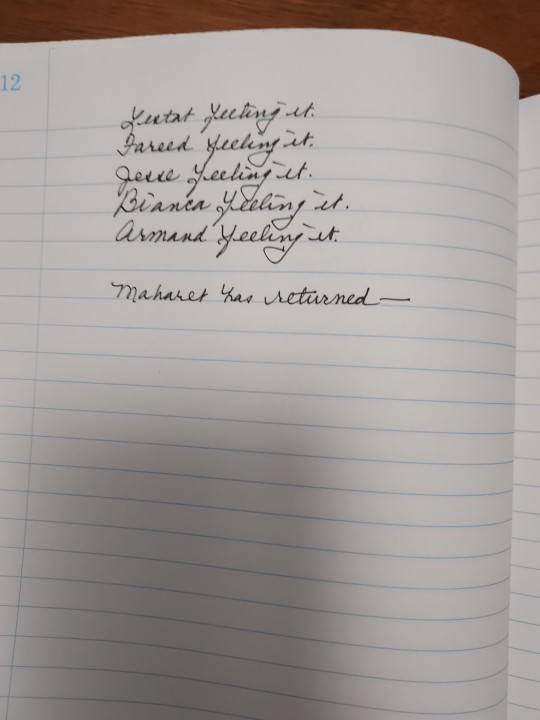 12
Lestat feeling it.
Fareed feeling it.
Jesse feeling it.
Bianca feeling it.
Armand feeling it.
Maharet has returned—